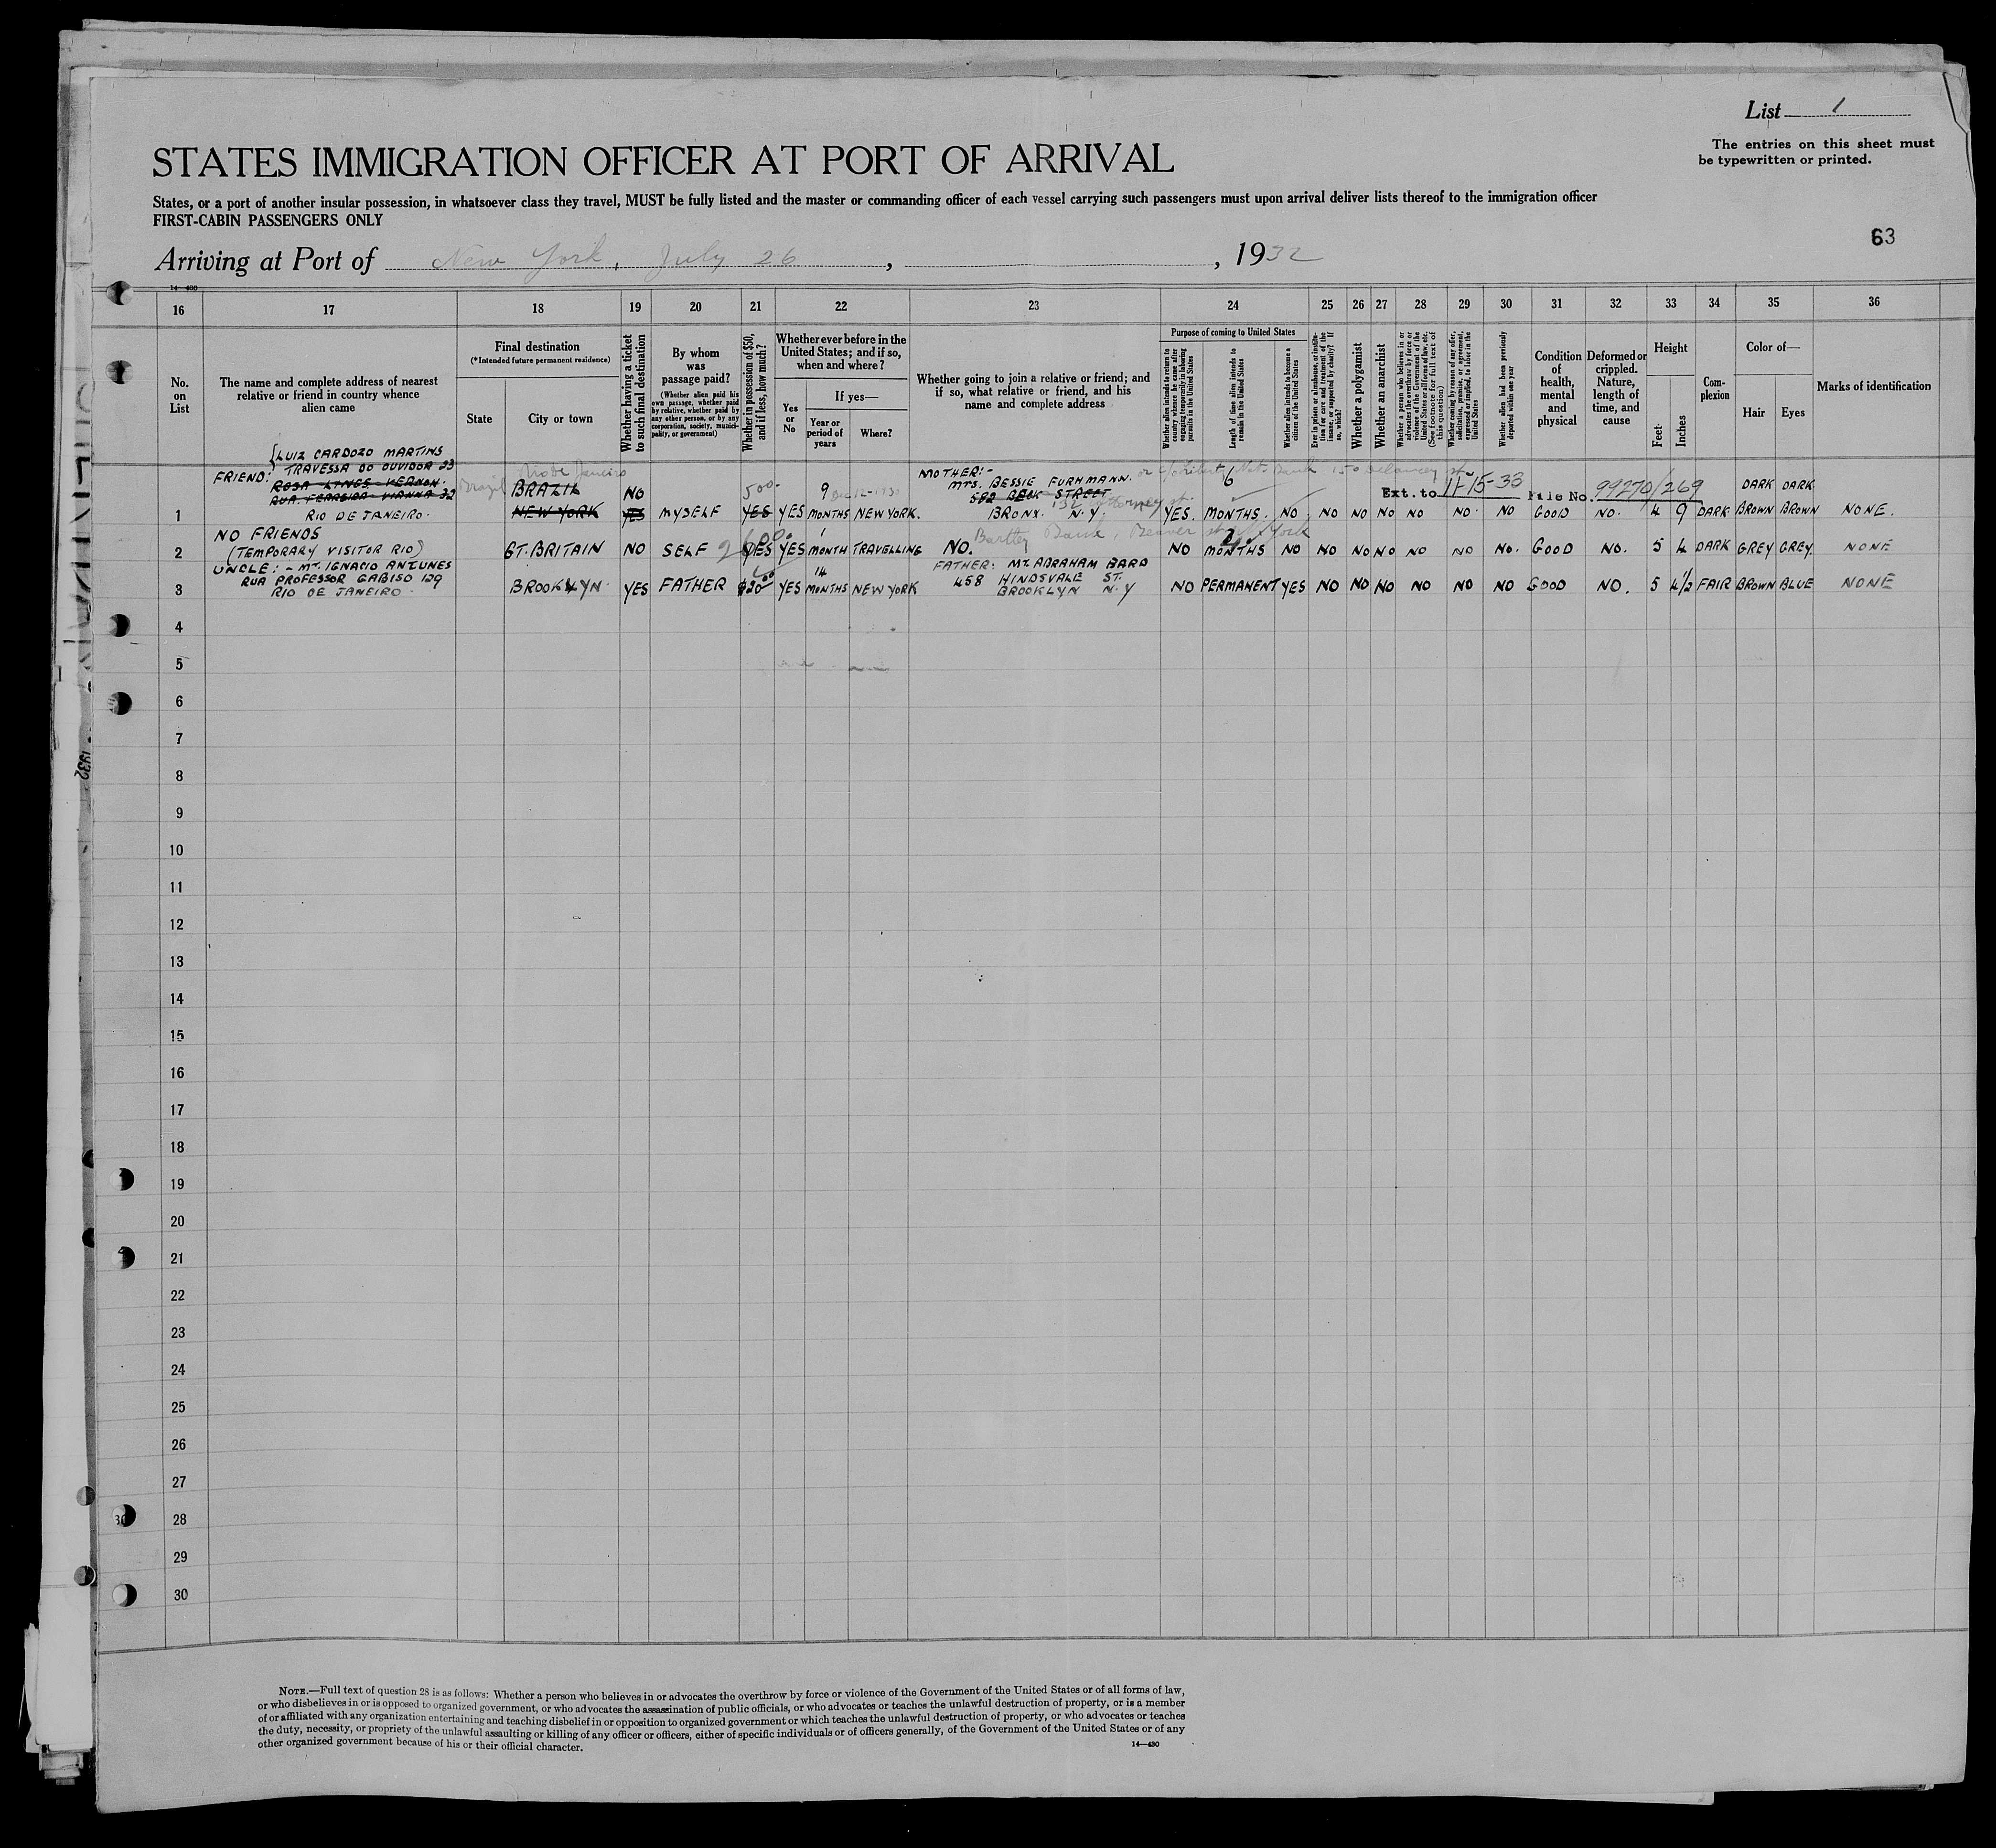 List 1
The entries on this sheet must
be typewritten or printed.
STATES IMMIGRATION OFFICER AT PORT OF ARRIVAL
States, or a port of another insular possession, in whatsoever class they travel, MUST be fully listed and the master or commanding officer of each vessel carrying such passengers must upon arrival deliver lists thereof to the immigration officer
FIRST-CABIN PASSENGERS ONLY
63
Arriving at Port of New York, July 26, , 1932
14—430
16 17 18 19 20 21 22 23 24 25 26 27 28 29 30 31 32 33 34 35 36
No. on List
The name and complete address of nearest
relative or friend in country whence
alien came
Final destination
(*Intended future permanent residence)
State
City or town
Whether having a ticket
to such final destination
By whom
was
passage paid?
(Whether alien paid his
own passage, whether paid
by relative, whether paid by
any other person, or by any
corporation, society, munici-
pality, or government)
Whether in possession of $50,
and if less, how much?
Whether ever before in the
United States; and if so,
when and where?
Yes
or
No
If yes—
Year or
period of
years
Where?
Whether going to join a relative or friend; and
if so, what relative or friend, and his
name and complete address
Purpose of coming to United States
Whether alien intends to return to
country whence he came after
engaging temporarily in laboring
pursuits in the United States
Length of time alien intends to
remain in the United States
Whether alien intends to become a
citizen of the United States
Ever in prison or almshouse, or institu-
tion for care and treatment of the
insane, or supported by charity? If
so, which?
Whether a polygamist
Whether an anarchist
Whether a person who believes in or
advocates the overthrow by force or
violence of the Government of the
United States or all forms of law, etc.
(See footnote for full text of
this question)
Whether coming by reason of any offer,
solicitation, promise, or agreement,
expressed or implied, to labor in the
United States
Whether alien had been previously
deported within one year
Condition
of
health,
mental
and
physical
Deformed or
crippled.
Nature,
length of
time, and
cause
Height
Feet
Inches
Com-
plexion
Color of—
Hair
Eyes
Marks of identification
LUIZ CARDOZO MARTINS
FRIEND: TRAVESSA DO OUVIDOR 33
ROSA VERNON.
RUA. FERREIRA VIANNA 32
1 RIO DE JANEIRO.
Brazil
Rio de Janeiro
BRAZIL
NEW YORK
NO
YES
MYSELF
500-
YES
YES
9
MONTHS
NEW YORK.
MOTHER:-
MRS. BESSIE FURHMANN.
582 BECK STREET
BRONX. N.Y.
YES.
6
MONTHS.
NO
Ext. to 11-15-33 File No. 99270/269
NO NO NO NO NO NO GOOD NO. 4 9 DARK
DARK DARK
BROWN BROWN NONE.
NO FRIENDS
2 (TEMPORARY VISITOR RIO)
GT. BRITAIN NO SELF
YES YES
1
MONTH TRAVELLING NO.
Bartley Bank, Beaver st New York
NO
2
MONTHS NO NO NO NO NO NO NO. GOOD NO. 5 4 DARK GREY GREY. NONE
UNCLE: - MR. IGNACIO ANTUNES
RUA PROFESSOR GABISO 129
3 RIO DE JANEIRO.
BROOKLYN YES FATHER $20 YES
14
MONTHS NEW YORK
FATHER: MR. ABRAHAM BARD
458 HINDSVALE ST.
BROOKLYN N.Y
NO PERMANENT YES NO NO NO NO NO NO GOOD NO. 5 4½ FAIR BROWN BLUE NONE
4
5
6
7
8
9
10
11
12
13
14
15
16
17
18
19
20
21
22
23
24
25
26
27
28
29
30
NOTE.—Full text of question 28 is as follows: Whether a person who believes in or advocates the overthrow by force or violence of the Government of the United States or of all forms of law,
or who disbelieves in or is opposed to organized government, or who advocates the assassination of public officials, or who advocates or teaches the unlawful destruction of property, or is a member
of or affiliated with any organization entertaining and teaching disbelief in or opposition to organized government or which teaches the unlawful destruction of property, or who advocates or teaches
the duty, necessity, or propriety of the unlawful assaulting or killing of any officer or officers, either of specific individuals or of officers generally, of the Government of the United States or of any
other organized government because of his or their official character.
14—430